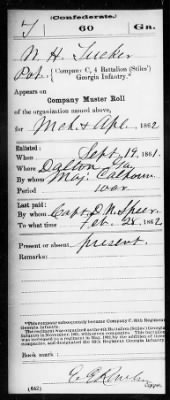 (Confederate.)
T 60 Ga.
W. H. Tucker
Pvt., Company C, 4 Battalion (Stiles')
Georgia Infantry.*
Appears on
Company Muster Roll
of the organization named above,
for Mch & Apl. 1862
Enlisted:
When Sept. 19, 1861.
Where Dalton, Ga.
By whom Maj. Calhoun
Period war
Last paid:
By whom Capt. D. N. Speer
To what time Feb. 28, 1862
Present or absent present
Remarks:
Book mark:
(642) Copyist.